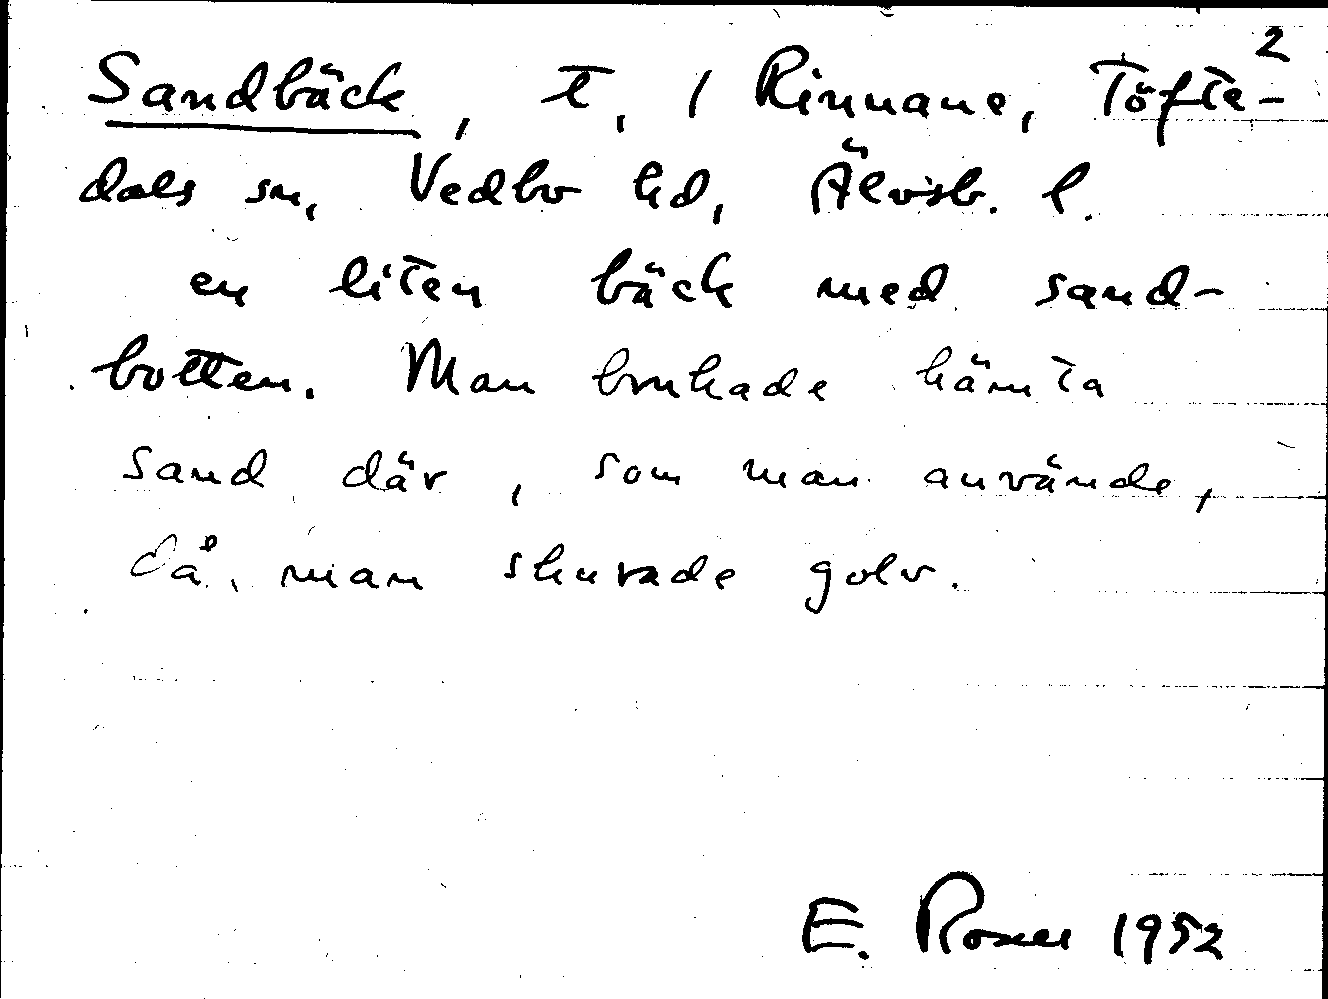 2
Sandbäck, t, 1 Rinnane, Töfte-
dals sn, Vedbo hd, Älvsb. l.
en liten bäck med sand-
botten. Man brukade hämta
sand där, som man använde,
då man skurade golv.
E. 1952